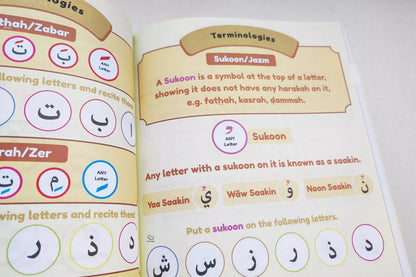 ologies
thah/Zabar
تَ
بَ
ANY
Letter
llowing letters and recite them
ت
ب
ا
rah/Zer
تِ
بِ
ANY
Letter
wing letters and recite them!
ر
ذ
د
Terminologies
Sukoon/Jazm
A Sukoon is a symbol at the top of a letter,
showing it does not have any harakah on it,
e.g. fatḥah, kasrah, ḍammah.
ANY
Letter
Sukoon
Any letter with a sukoon on it is known as a saakin.
Yaa Saakin
يْ
Wāw Saakin
وْ
Noon Saakin
نْ
Put a sukoon on the following letters.
ش
س
ز
ر
ذ
د
52